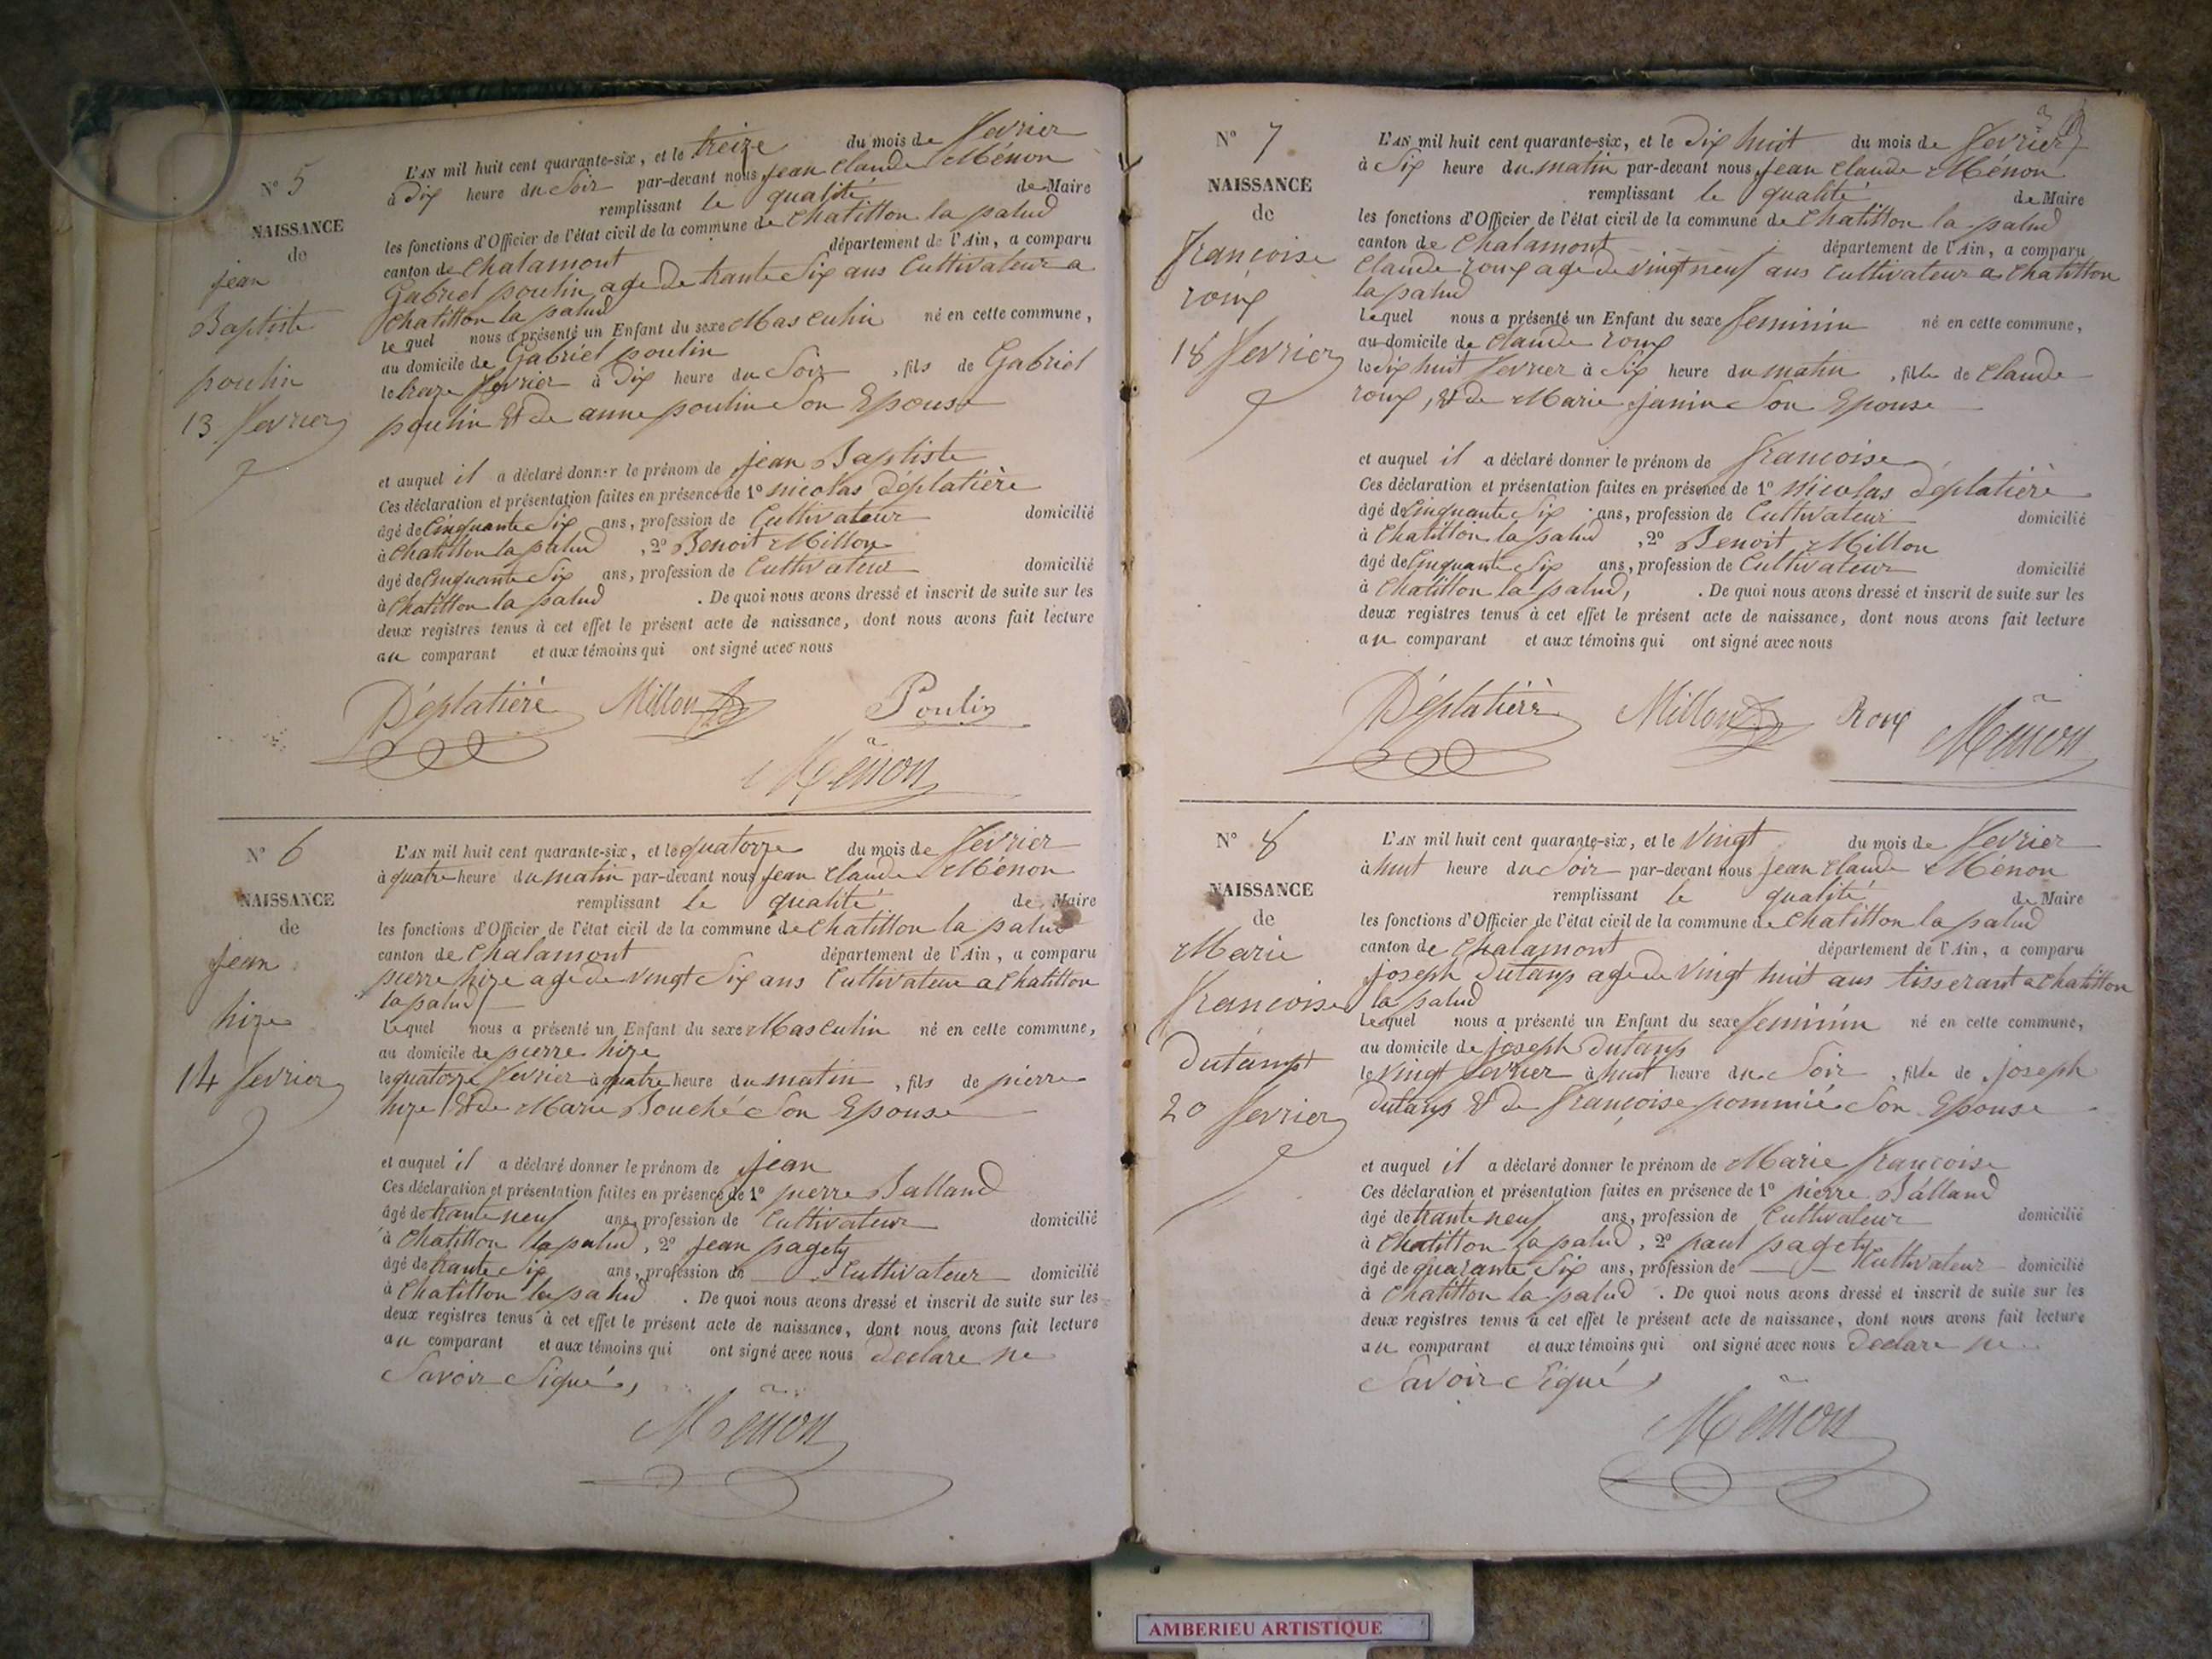 N° 5
NAISSANCE
de
jean
Baptiste
poulin
13 fevrier
L'AN mil huit cent quarante-six, et le treize du mois de fevrier
à dix heure du Soir par-devant nous jean Claude Ménon
remplissant le qualité de Maire
les fonctions d'Officier de l'état civil de la commune de Chatillon la palud
canton de Chalamont département de l'Ain, a comparu
Gabriel poulin age de trante Six ans Cultivateur a
Chatillon la palud
le quel nous a présenté un Enfant du sexe Masculin né en cette commune,
au domicile de Gabriel poulin
le treze fevrier à dix heure du Soir, fils de Gabriel
poulin Et de anne poulin Son Epouse
et auquel il a déclaré donner le prénom de jean Baptiste
Ces déclaration et présentation faites en présence de 1° nicolas déplatière
âgé de Cinquante Six ans, profession de Cultivateur domicilié
à Chatillon la palud, 2° Benoit Millon
âgé de Cinquante Six ans, profession de Cultivateur domicilié
à Chatillon la palud. De quoi nous avons dressé et inscrit de suite sur les
deux registres tenus à cet effet le présent acte de naissance, dont nous avons fait lecture
au comparant et aux témoins qui ont signé avec nous
Déplatière Millon Poulin
Ménon
N° 6
NAISSANCE
de
jean
hize
14 fevrier
L'AN mil huit cent quarante-six, et le quatorze du mois de fevrier
à quatre heure du matin par-devant nous jean Claude Ménon
remplissant le qualité de Maire
les fonctions d'Officier de l'état civil de la commune de Chatillon la palud
canton de Chalamont département de l'Ain, a comparu
pierre hize age de vingt Six ans Cultivateur a Chatillon
la palud
Lequel nous a présenté un Enfant du sexe Masculin né en cette commune,
au domicile de pierre hize
le quatorze fevrier à quatre heure du matin, fils de pierre
hize Et de Marie Bouché Son Epouse
et auquel il a déclaré donner le prénom de jean
Ces déclaration et présentation faites en présence de 1° pierre Balland
âgé de trante neuf ans, profession de Cultivateur domicilié
à Chatillon la palud, 2° jean pagety
âgé de trante Six ans, profession de Cultivateur domicilié
à Chatillon la palud. De quoi nous avons dressé et inscrit de suite sur les
deux registres tenus à cet effet le présent acte de naissance, dont nous avons fait lecture
au comparant et aux témoins qui ont signé avec nous declare ne
Savoir Signé,
Ménon
N° 7
NAISSANCE
de
francoise
roux
18 fevrier
L'AN mil huit cent quarante-six, et le dix huit du mois de fevrier
à Six heure du matin par-devant nous jean Claude Ménon
remplissant le qualité de Maire
les fonctions d'Officier de l'état civil de la commune de Chatillon la palud
canton de Chalamont département de l'Ain, a comparu
Claude roux age de vingt neuf ans Cultivateur a Chatillon
la palud
Lequel nous a présenté un Enfant du sexe feminin né en cette commune,
au domicile de Claude roux
le dix huit fevrier à Six heure du matin, fille de Claude
roux, Et de Marie janin Son Epouse
et auquel il a déclaré donner le prénom de francoise
Ces déclaration et présentation faites en présence de 1° nicolas déplatière
âgé de Cinquante Six ans, profession de Cultivateur domicilié
à Chatillon la palud, 2° Benoit Millon
âgé de Cinquante Six ans, profession de Cultivateur domicilié
à Chatillon la palud, . De quoi nous avons dressé et inscrit de suite sur les
deux registres tenus à cet effet le présent acte de naissance, dont nous avons fait lecture
au comparant et aux témoins qui ont signé avec nous
Déplatière Millon Roux Ménon
N° 8
NAISSANCE
de
Marie
francoise
dutampt
20 fevrier
L'AN mil huit cent quarante-six, et le vingt du mois de fevrier
à huit heure du Soir par-devant nous jean Claude Ménon
remplissant le qualité de Maire
les fonctions d'Officier de l'état civil de la commune de Chatillon la palud
canton de Chalamont département de l'Ain, a comparu
joseph dutanp age de vingt huit ans tisserant a Chatillon
la palud
Lequel nous a présenté un Enfant du sexe feminin né en cette commune,
au domicile de joseph dutanp
le vingt fevrier à huit heure du Soir, fille de joseph
dutanp Et de françoise pommié Son Epouse
et auquel il a déclaré donner le prénom de Marie francoise
Ces déclaration et présentation faites en présence de 1° pierre Balland
âgé de trante neuf ans, profession de Cultivateur domicilié
à Chatillon la palud, 2° paul pagety
âgé de quarante Six ans, profession de Cultivateur domicilié
à Chatillon la palud. De quoi nous avons dressé et inscrit de suite sur les
deux registres tenus à cet effet le présent acte de naissance, dont nous avons fait lecture
au comparant et aux témoins qui ont signé avec nous declare ne
Savoir Signé,
Ménon
AMBERIEU ARTISTIQUE